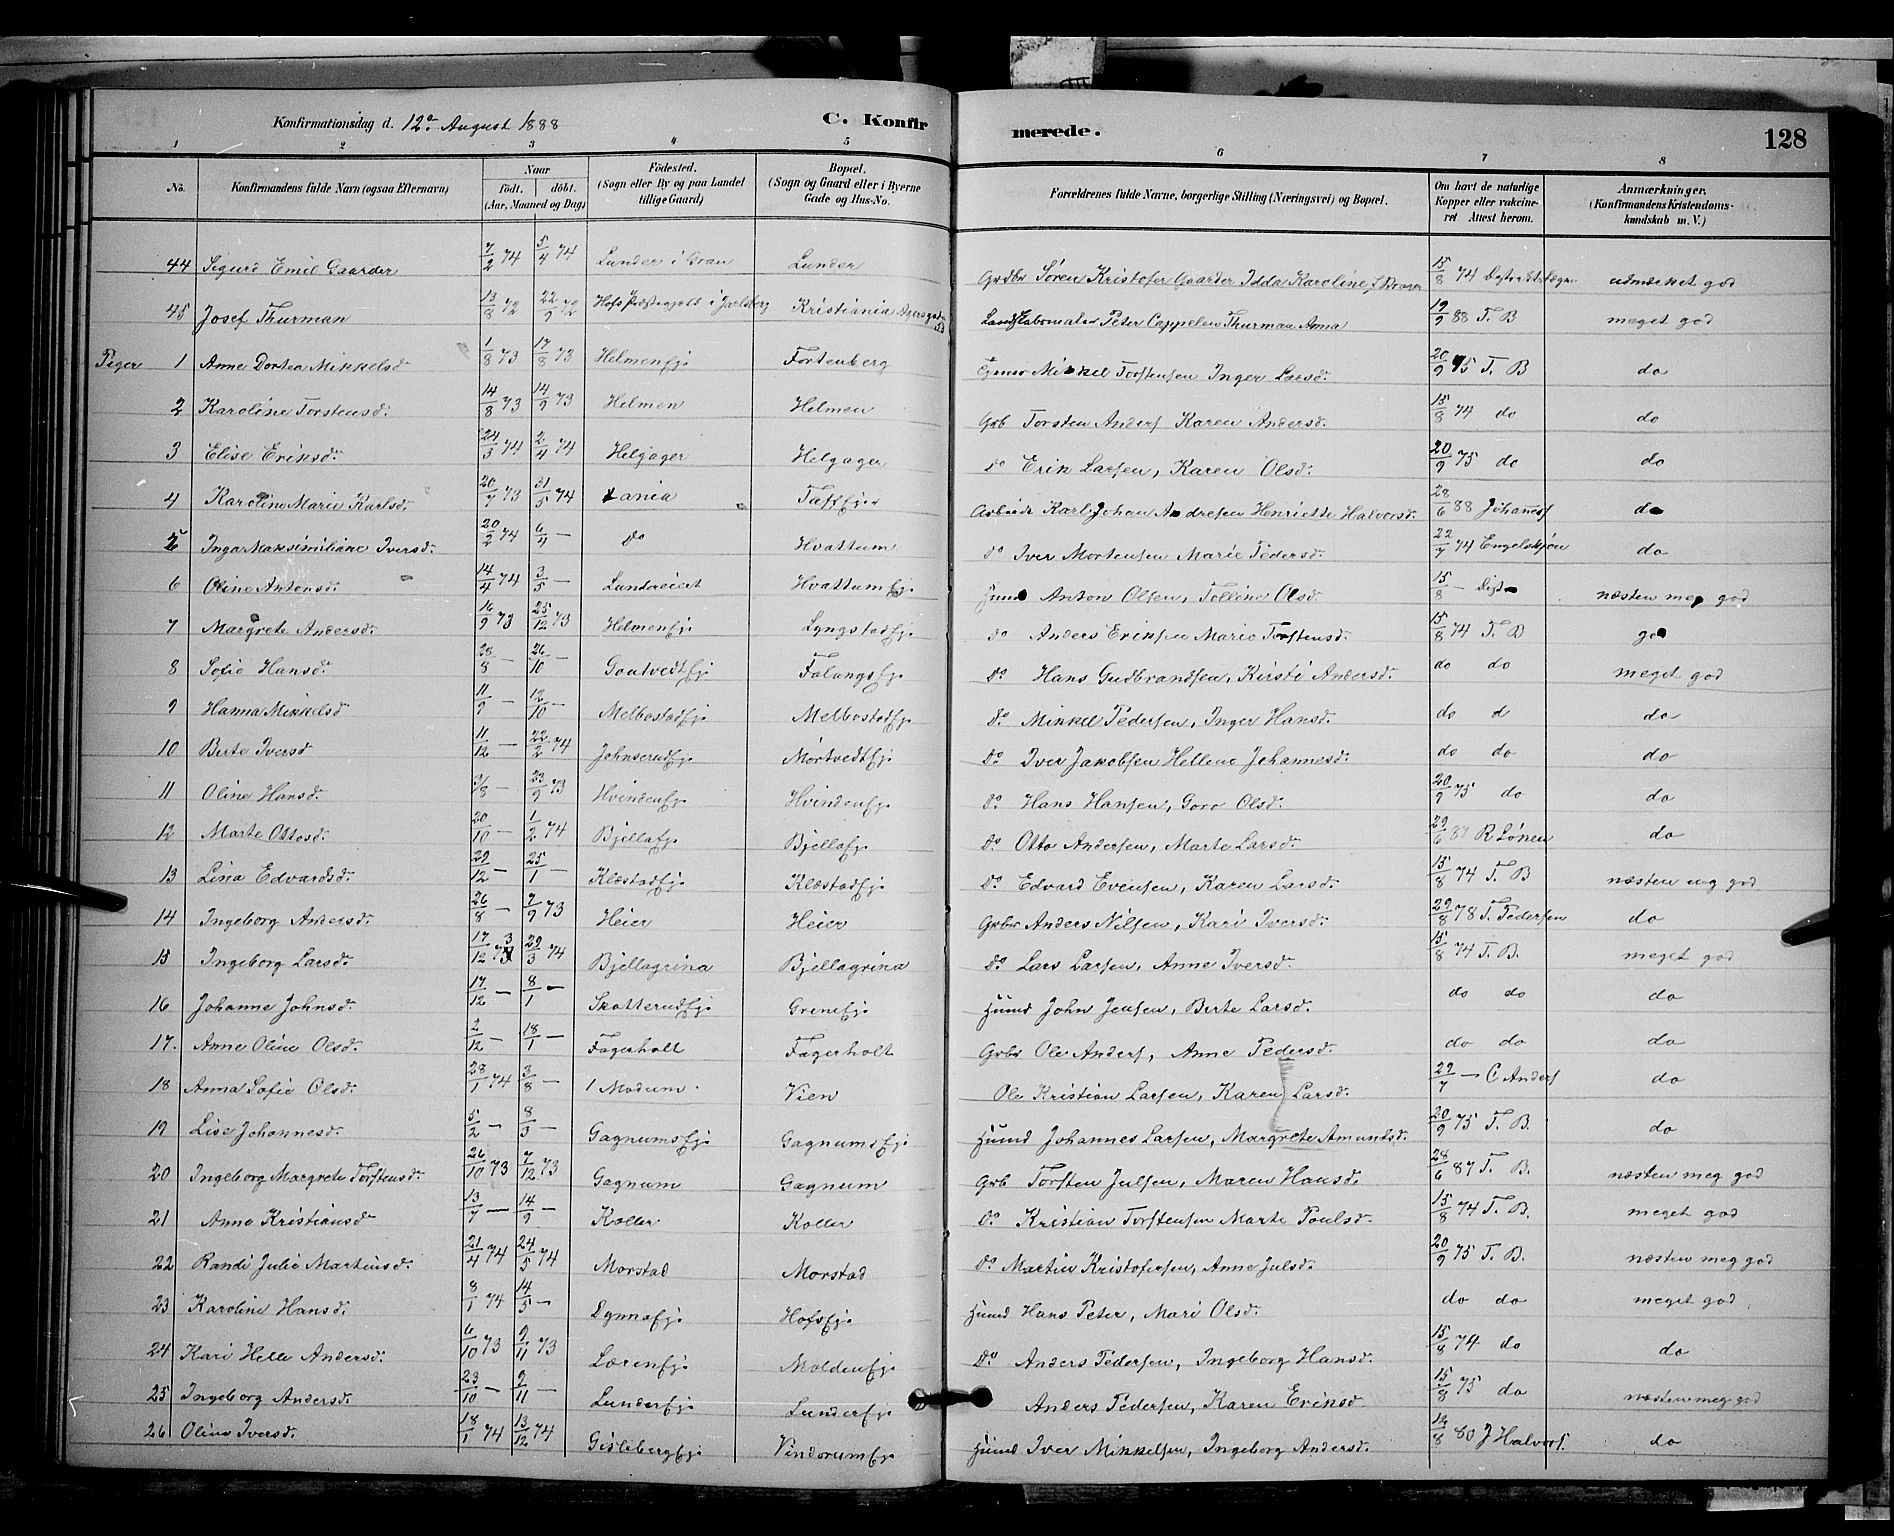 Konfirmationsdag d. 12te August 1888 C. Konfirmerede. 128
1 2 3 4 5 6 7 8
No. Konfirmandens fulde Navn (ogsaa Efternavn) Naar født. døbt. (Aar, Maaned og Dag) Födested. (Sogn eller By og paa Landet tillige Gaard) Bopæl. (Sogn og Gaard eller i Byerne Gade og Hus-No. Forældrenes fulde Navne, borgerlige Stilling (Næringsvei) og Bopæl. Om havt de naturlige Kopper eller vakcineret Attest herom. Anmærkninger. (Konfirmandens Kristendomskundskab m. V.)
44 Sigurd Emil Gaarder 7/2 74 5/4 74 Lunder i Gran Lunder Grdbr Sören Kristofer Gaarder Idda Karoline 15/8 74 udmærket god
45 Josef Thurman 13/8 72 22/9 72 Hofs Præstegjeld i Jarlsberg Kristiania Landskabsmaler Peter Cappelen Thurman Anna 19/9 88 T. B meget god
Piger 1 Anne Dortea Mikkelsd 1/8 73 17/8 73 Helmenej. Fortenberg Mikkel Torstensen Inger Larsd. 20/9 75 T. B do
2 Karoline Torstensd. 14/8 73 14/9 73 Helmen Helmen Grb Torsten Anders Karen Andersd. 15/8 74 do do
3 Elise Eriksd. 24/3 74 2/4 74 Helgager Helgager do Erik Larsen, Karen Olsd. 20/9 75 do do
4 Karoline Marie Karlsd. 20/7 73 31/5 74 Karl Johan Andresen Henriette Halvorsd. 28/6 88 Johanness do
5 Inga Maksimiliane Iversd. 20/2 74 6/4 — do Hvattum do Iver Mortensen Marie Pedersd. 22/7 74 Engelskjøn do
6 Oline Antonsd. 14/4 74 3/5 — Lundereiet Hvattumej. Husmd Anton Olsen, Talline Olsd. 15/8 — næsten meg god
7 Margrete Andersd. 16/9 73 25/12 73 Helmenej. Lyngstadej. do Anders Eriksen Marie Torstensd. 15/8 74 T. B god
8 Sofie Hansd. 28/8 — 26/10 — Gaatvedtej. Falangsej. do Hans Gudbrandsen, Kirsti Andersd. do do meget god
9 Hanna Mikkelsd 11/9 — 12/10 — Melbostadej. Melbostadej. do Mikkel Pedersen, Inger Hansd. do d do
10 Berte Iversd 11/12 — 22/2 74 Johnserudej. Mörtvedtej. do Iver Jakobsen Hellene Johannesd. do do do
11 Oline Hansd. 3/8 — 23/9 73 Hvindenej. Hvindenej. do Hans Hansen, Goro Olsd. 20/9 75 do do
12 Marte Ottosd. 20/10 — 1/2 74 Bjellaej. Bjellaej. do Otto Andersen, Marte Larsd. 29/6 87 R Lönen do
13 Lina Edvardsd. 29/12 — 25/1 — Klæstadej. Klæstadej. do Edvard Evensen, Karen Larsd. 15/8 74 T. B næsten meg god
14 Ingeborg Andersd. 26/8 — 7/9 73 Heier Heier Grbr Anders Nilsen, Kari Iversd. 29/8 78 T. Pedersen do
15 Ingeborg Larsd. 17/12 73 29/3 74 Bjellagrina Bjellagrina do Lars Larsen, Anne Iversd. 15/8 74 T. B. meget god
16 Johanne Johnsd. 17/12 — 8/1 — Skatterudej. Grinnej. Husmd John Jensen, Berte Larsd. do do do
17. Anne Oline Olsd. 2/12 — 18/1 — Fagerholt Fagerholt Grbr Ole Anders, Anne Pedersd. do do do
18 Anna Sofie Olsd. 28/1 74 3/8 — i Modum Vien Ole Kristian Larsen, Karen Larsd. 29/7 — C Anders do
19 Lise Johannesd. 5/2 — 8/3 — Gagnumsej. Gagnumsej. Husmd Johannes Larsen, Margrete Amundsd. 20/9 75 T. B. do
20 Ingeborg Margrete Torstensd. 26/10 73 7/12 73 Gagnum Gagnum Grb Torsten Julsen, Maren Hansd. 28/6 87 T. B. næsten meg god
21 Anne Kristiansd 13/7 — 14/9 — Koller Koller do Kristian Torstensen Marte Poulsd. 15/8 74 T. B. meget god
22 Randi Julie Martinsd. 21/4 74 24/5 74 Morstad Morstad do Martin Kristofersen, Anne Julsd. 20/9 75 T. B. næsten meg god
23 Karoline Hansd. 8/1 74 14/5 — Dynnaej. Hofsej. Husmd Hans Peter, Mari Olsd. do do meget god
24 Kari Helle Andersd. 6/10 73 9/11 73 Lærenej. Moldenej. do Anders Pedersen, Ingeborg Hansd. 15/8 74 do do
25 Ingeborg Andersd. 23/10 — 9/11 — Lunderej. Lunderej. Anders Pedersen, Karen Eriksd 15/8 75 do næsten meg god
26 Oline Iversd. 18/1 74 13/12 74 Gislebergej. Vindorumej. Husmd Iver Mikkelsen, Ingeborg Andersd. 80 J Halvors. do